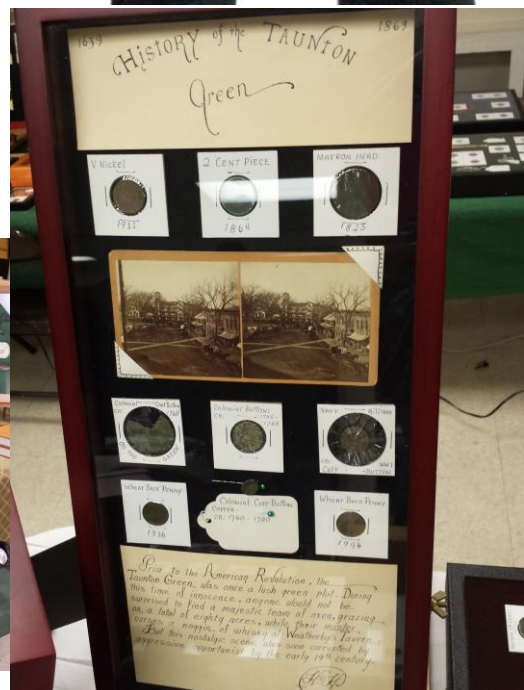 1639
1869
History of the Taunton
Green
V Nickel
2 Cent Piece
1864
Matron Head
1825
Colonial Coat Button
on the Green
Colonial Button
Navy Military
WWI
Cuff Button
Wheat Back Penny
1936
Colonial Cuff Button
Copper
ca: 1760 - 1780
Wheat Back Penny
1946
Prior to the American Revolution, the
Taunton Green was once a lush green plot. During
this time of innocence, anyone would not be
surprised to find a majestic team of oxen, grazing
on a total of eighty acres, while their master
nurses a noggin of whisky at Weatherby's Tavern.
But this nostalgic scene was soon corrupted by
aggressive opportunist by the early 19th century.